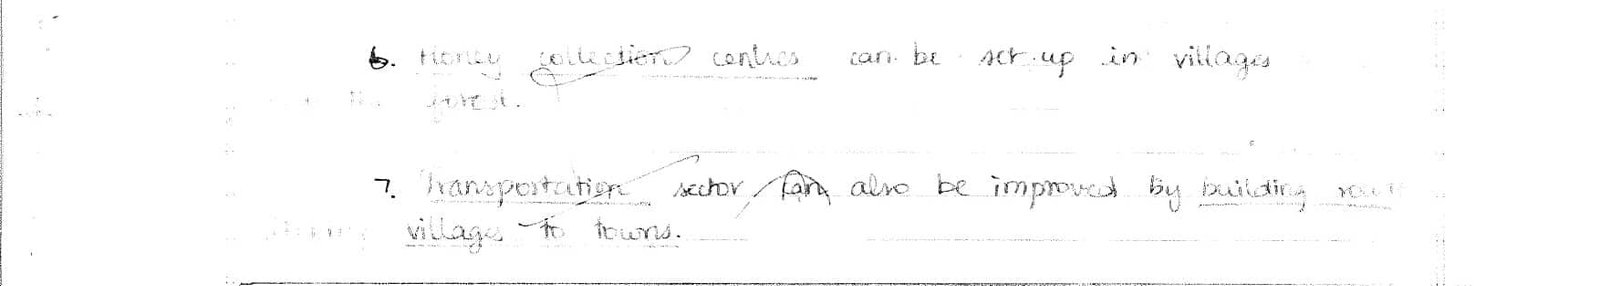 6. Honey collection centres can be set up in villages
the forest.
7. Transportation sector can also be improved by building
villages to towns.